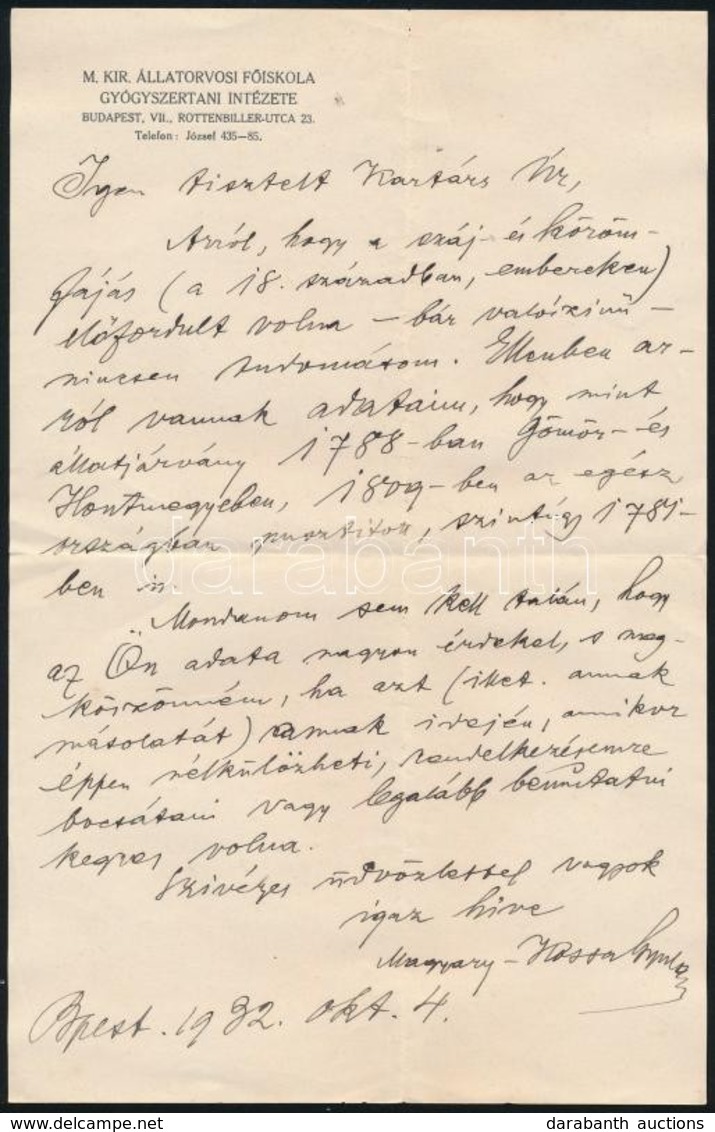 M. KIR. ÁLLATORVOSI FŐISKOLA
GYÓGYSZERTANI INTÉZETE
BUDAPEST, VII., ROTTENBILLER-UTCA 23.
Telefon: József 435—85.
Igen tisztelt Kartárs Úr,
Arról, hogy a száj- és köröm-
fájás (a 18. században, embereken)
előfordult volna – bár valószinü –
nincsen tudomásom. Ellenben ar-
ról vannak adataim, hogy mint
állatjárvány 1788-ban Gömör- és
Hontmegyében, 1809-ben az egész
országban pusztított, szintúgy 1781-
ben is.
Mondanom sem kell talán, hogy
az Ön adata nagyon érdekel, s meg-
köszönném, ha azt (illet. annak
másolatát) annak idején, amikor
éppen nélkülözheti, rendelkezésemre
bocsátani vagy legalább bemutatni
kegyes volna.
Szivélyes üdvözlessel vagyok
igaz hive
Magyary-Kossa Gyula
Bpest. 1932. okt. 4.
darabanth
darabanth auctions